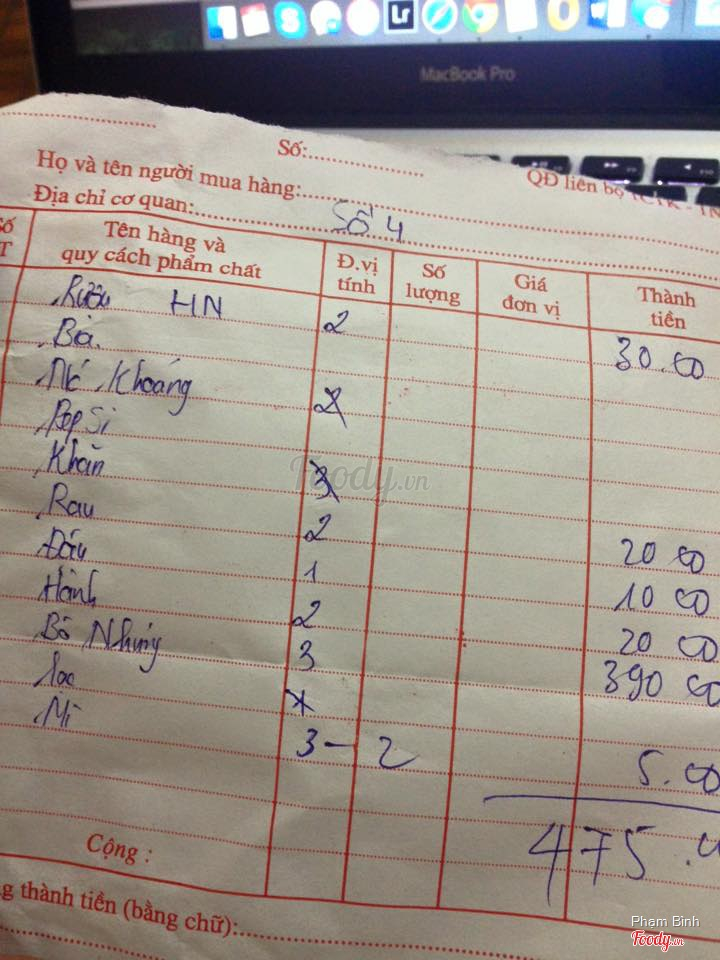 MacBook Pro
Số:
QĐ liên bộ TCTK - TN
Họ và tên người mua hàng:
Địa chỉ cơ quan: Số 4
Số T Tên hàng và quy cách phẩm chất Đ.vị tính Số lượng Giá đơn vị Thành tiền
Rượu HN 2 30.00
Bia
Nc Khoáng 2
Pepsi
Khăn 3
Rau 2 20 00
Đậu 1 10 00
Hành 2 20 00
Bò Nhúng 3 390 00
Lạc
Mì 3 - 2 5.00
Cộng : 475.
g thành tiền (bằng chữ):
Foody.vn
Pham Binh
Foody.vn